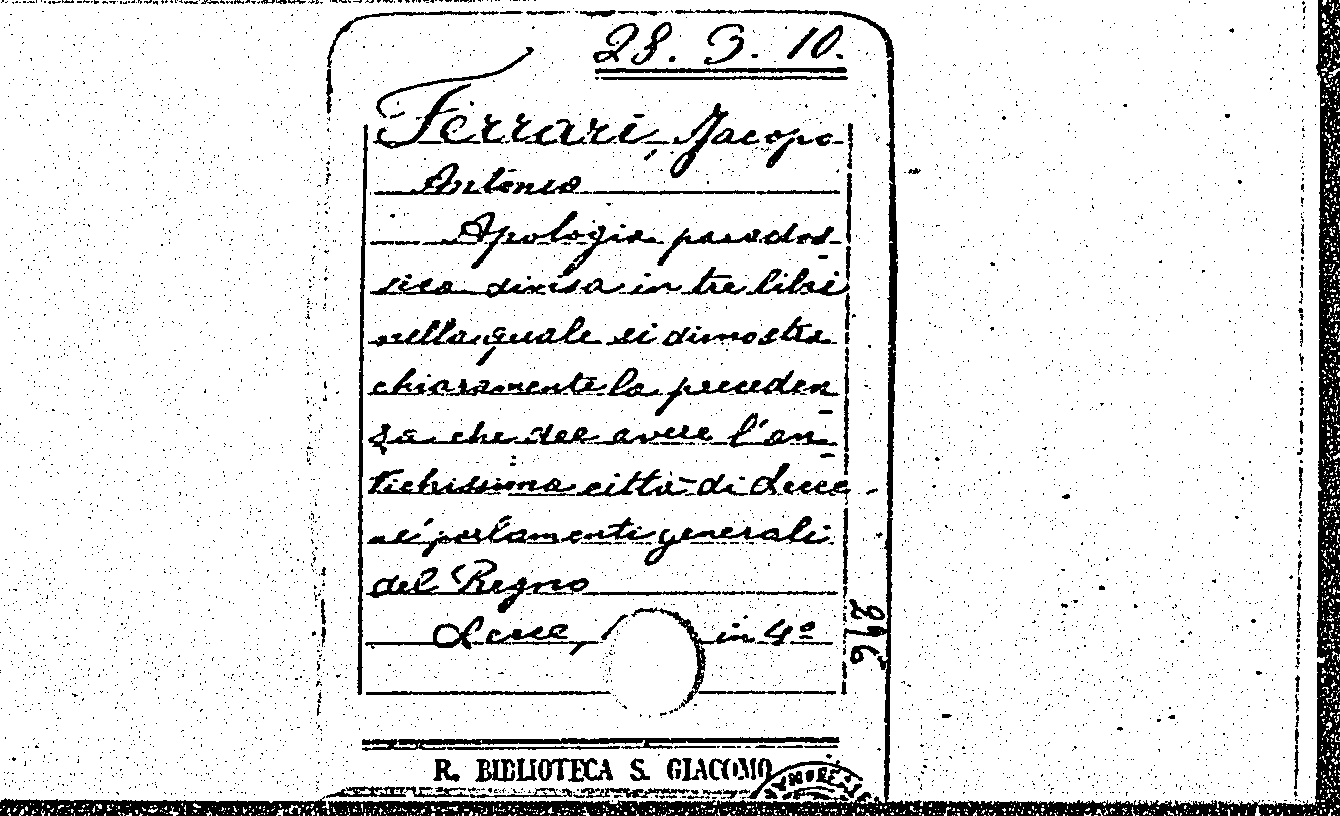 28. 3. 10.
Ferrari, Jacopo
Antonio
Apologia parados-
sica divisa in tre libri
nella quale si dimostra
chiaramente la preceden-
za che dee avere l'an-
tichissima città di Lecce
ne' parlamenti generali
del Regno
Lecce, in 4º
296
R. BIBLIOTECA S. GIACOMO